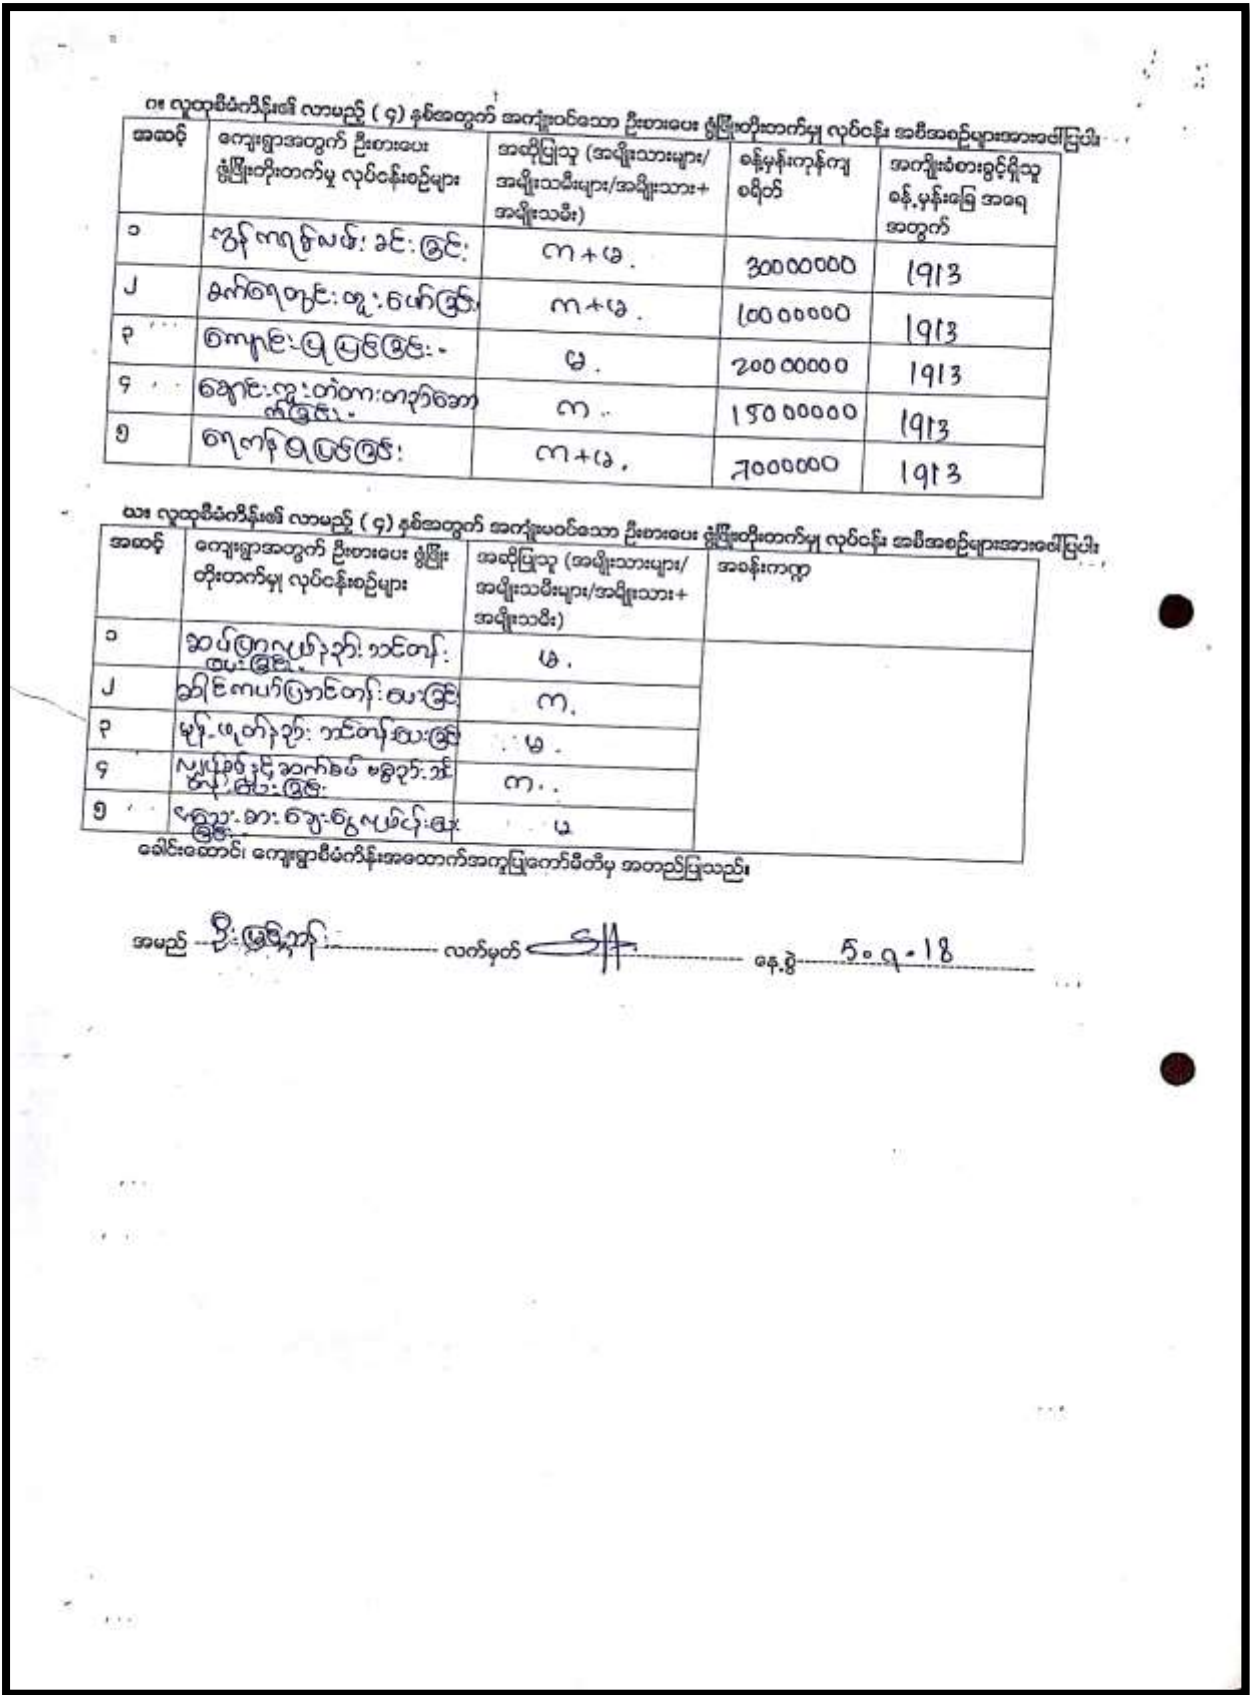 ဂ။ လူထုစီမံကိန်း၏ လာမည့် ( ၄) နှစ်အတွက် အကျုံးဝင်သော ဦးစားပေး ဖွံ့ဖြိုးတိုးတက်မှု လုပ်ငန်း အစီအစဉ်များအားဖေါ်ပြပါ။
အဆင့် ကျေးရွာအတွက် ဦးစားပေး ဖွံ့ဖြိုးတိုးတက်မှု လုပ်ငန်းစဉ်များ အဆိုပြုသူ (အမျိုးသားများ/အမျိုးသမီးများ/အမျိုးသား+အမျိုးသမီး) ခန့်မှန်းကုန်ကျစရိတ် အကျိုးခံစားခွင့်ရှိသူ ခန့်မှန်းခြေ အရေအတွက်
၁ ကွန်ကရစ်လမ်းခင်းခြင်း က+မ. 30000000 1913
၂ စက်ရေတွင်းတူးဖော်ခြင်း က+မ. 10000000 1913
၃ ကျောင်းပြုပြင်ခြင်း မ. 20000000 1913
၄ ချောင်းကူးတံတားတည်ဆောက်ခြင်း က. 15000000 1913
၅ ရေကန်ပြုပြင်ခြင်း က+မ. 7000000 1913
ဃ။ လူထုစီမံကိန်း၏ လာမည့် ( ၄) နှစ်အတွက် အကျုံးမဝင်သော ဦးစားပေး ဖွံ့ဖြိုးတိုးတက်မှု လုပ်ငန်း အစီအစဉ်များအားဖေါ်ပြပါ။
အဆင့် ကျေးရွာအတွက် ဦးစားပေး ဖွံ့ဖြိုးတိုးတက်မှု လုပ်ငန်းစဉ်များ အဆိုပြုသူ (အမျိုးသားများ/အမျိုးသမီးများ/အမျိုးသား+အမျိုးသမီး) အခန်းကဏ္ဍ
၁ ဆပ်ပြာလုပ်နည်း သင်တန်းပေးခြင်း မ.
၂ ဆိုင်ကယ်ပြင်သင်တန်းပေးခြင်း က.
၃ မုန့်ဖုတ်နည်း သင်တန်းပေးခြင်း မ.
၄ လျှပ်စစ်နှင့်ဆက်စပ် ပညာသင်တန်းပေးခြင်း က.
၅ အသေးစား ချေးငွေလုပ်ငန်းပေးခြင်း မ
ခေါင်းဆောင်၊ ကျေးရွာစီမံကိန်းအထောက်အကူပြုကော်မီတီမှ အတည်ပြုသည်။
အမည် ဦးမြင့်သန်း လက်မှတ် နေ့စွဲ 5.9.18